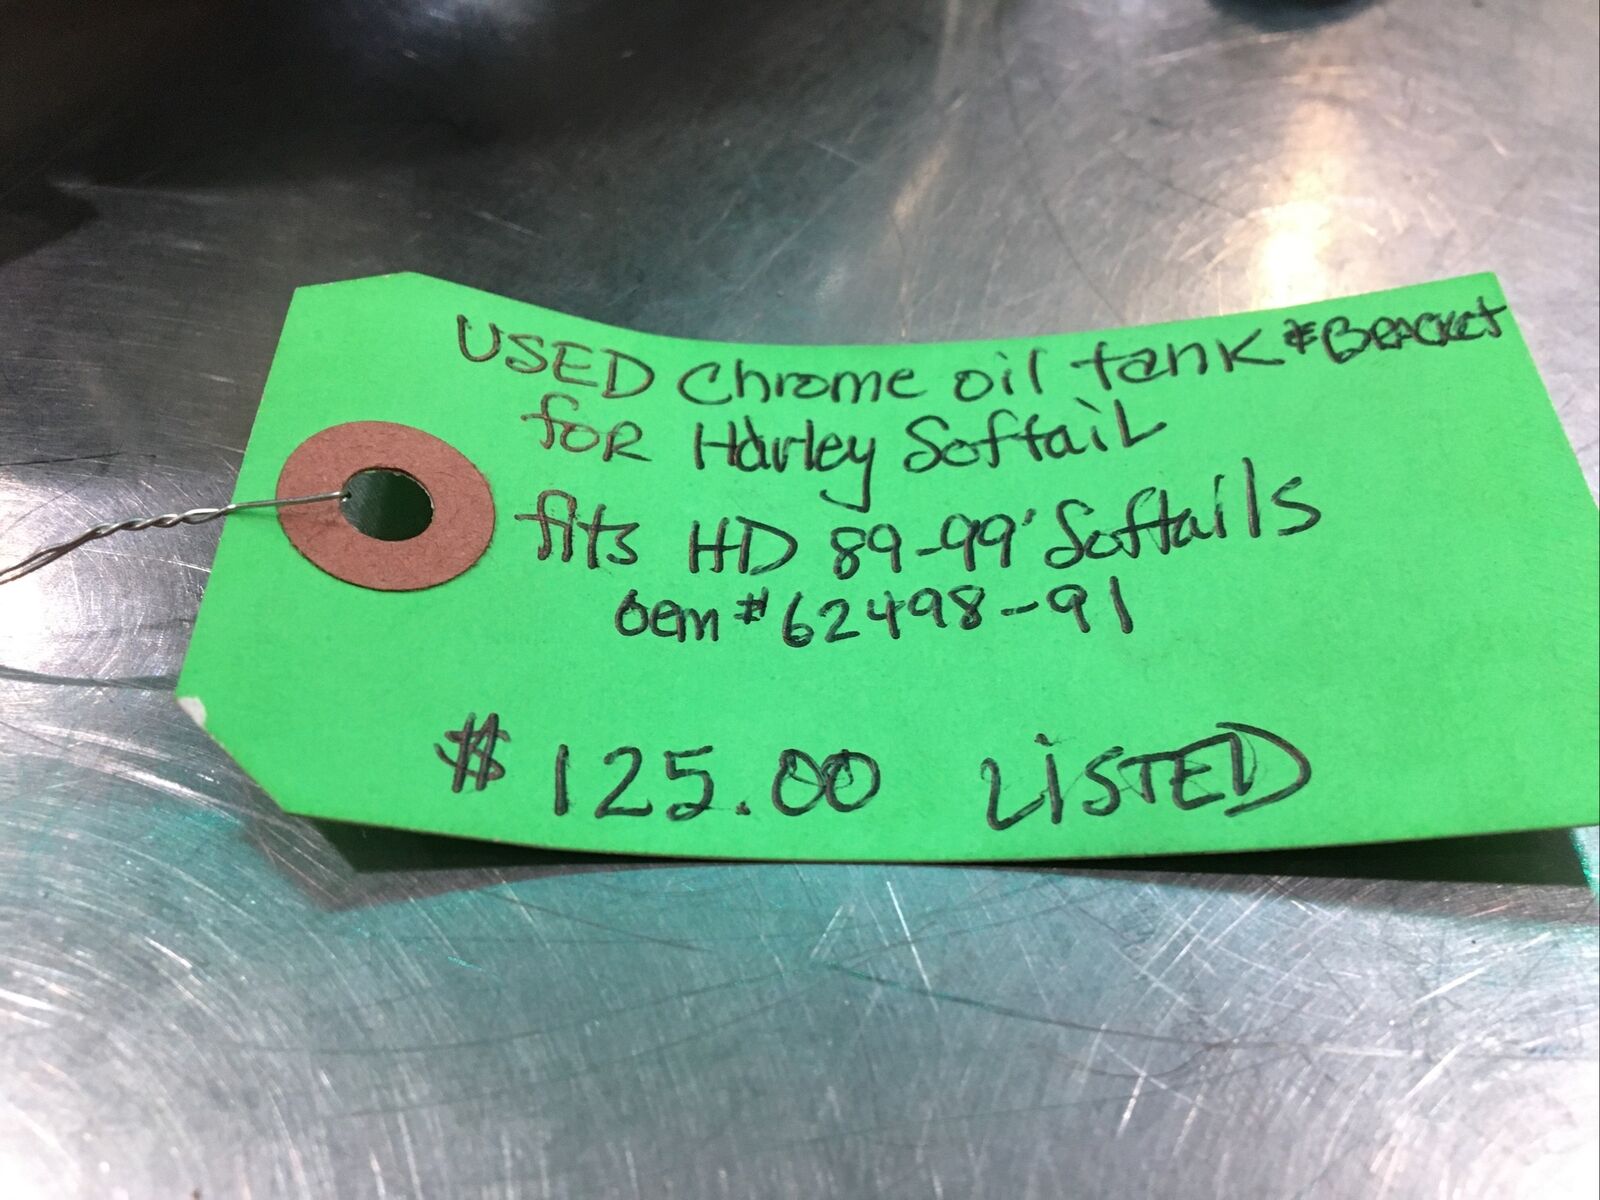 USED Chrome oil tank & BRACKET
for Harley Softail
fits HD 89-99' Softails
oem # 62498-91
$ 125.00 LiSTED